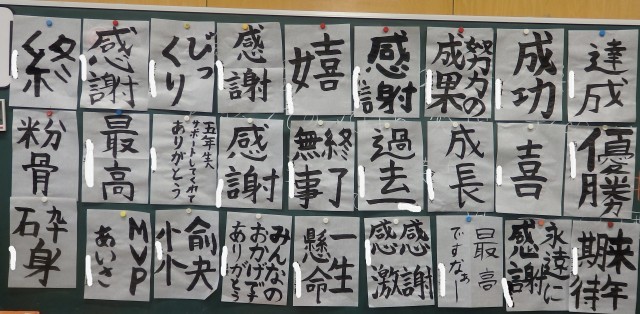 終
感謝
びっ
くり
感謝
嬉
感謝
努力の
成果
成功
達成
粉骨
最高
五年生へ
サポートしてくれて
ありがとう
感謝
終了
無事
過去一
成長
喜
優勝
砕身
MVP
あいさ
愉快
みんなの
おかげです
ありがとう
一生
懸命
感謝
感激
最高
ですなぁー
永遠に
感謝
来年
期待